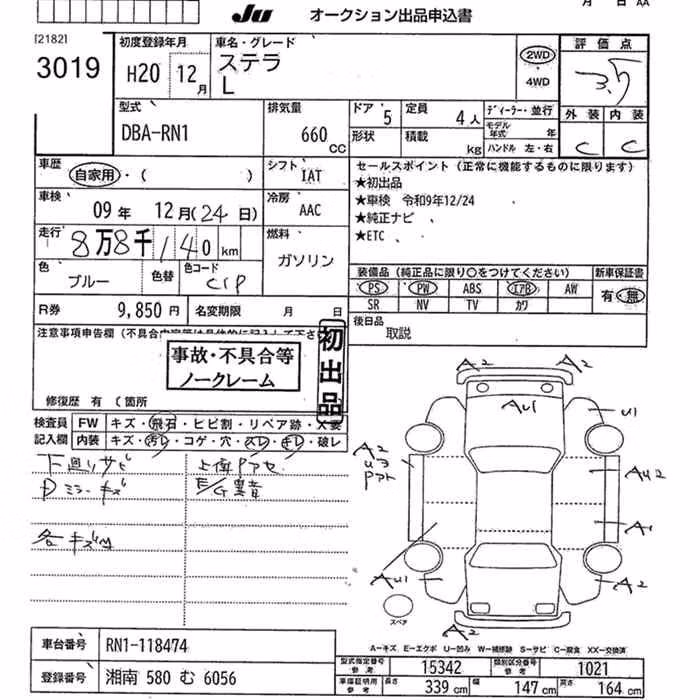 月 日 AA
Ju オークション出品申込書
[2182]
3019
初度登録年月
H20 12月
車名・グレード
ステラ
L
2WD
4WD
評価点
3.5
型式
DBA-RN1
排気量
660 CC
ドア 5
定員 4人
形状
積載 kg
ディーラー・並行
モデル年式 年
ハンドル 左・右
外装 内装
C C
車歴
自家用・( )
シフト
IAT
車検
09年 12月(24日)
冷房
AAC
走行
8万8千140km
燃料
ガソリン
色
ブルー
色替
色コード
C1P
セールスポイント (正常に機能するものに限ります)
★初出品
★車検 令和9年12/24
★純正ナビ
★ETC
装備品(純正品に限り○をつけてください)
新車保証書
PS PW ABS エアB AW
SR NV TV カワ
有・無
R券 9,850円
名変期限 月 日
後日品
取説
注意事項申告欄
事故・不具合等
ノークレーム
初出品
修復歴 有 (箇所
検査員記入欄
FW キズ・飛石・ヒビ割・リペア跡・X要
内装 キズ・汚レ・コゲ・穴・スレ・キレ・破レ
下廻リサビ
Dミラーキズ
各キズ凹
E/G異音
A2 A2
AU1
U1
A2
U3
AU2
A1
AU1
A2
A2
スペア
A-キズ E-エクボ U-凹み W-補修跡 S-サビ C-腐食 XX-交換済
車台番号 RN1-118474
登録番号 湘南 580 む 6056
型式指定番号 参考 15342
類別区分番号 参考 1021
車庫証明用 参考
長さ 339 cm
幅 147 cm
高さ 164 cm